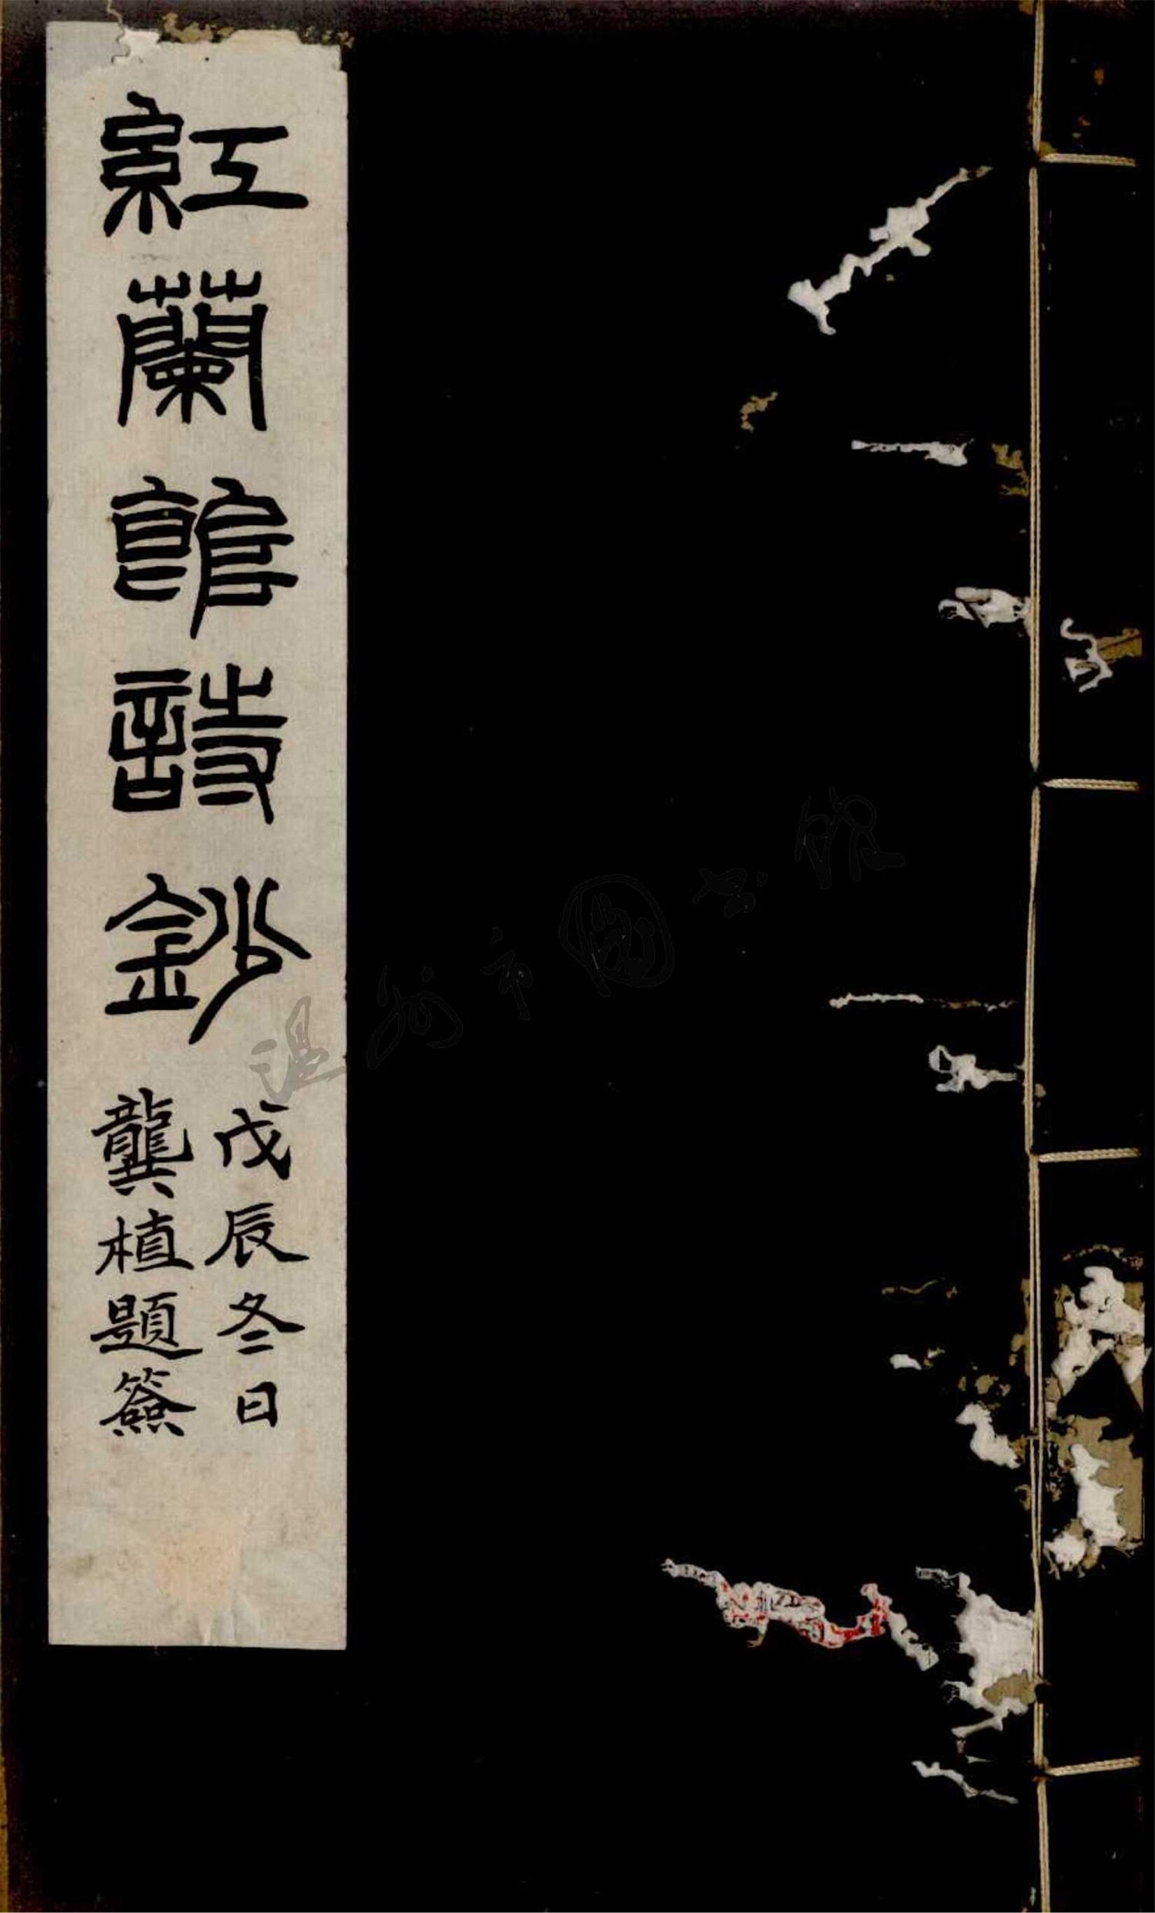 紅蘭館詩鈔
戊辰冬日
龔植題簽
温州市圖书館